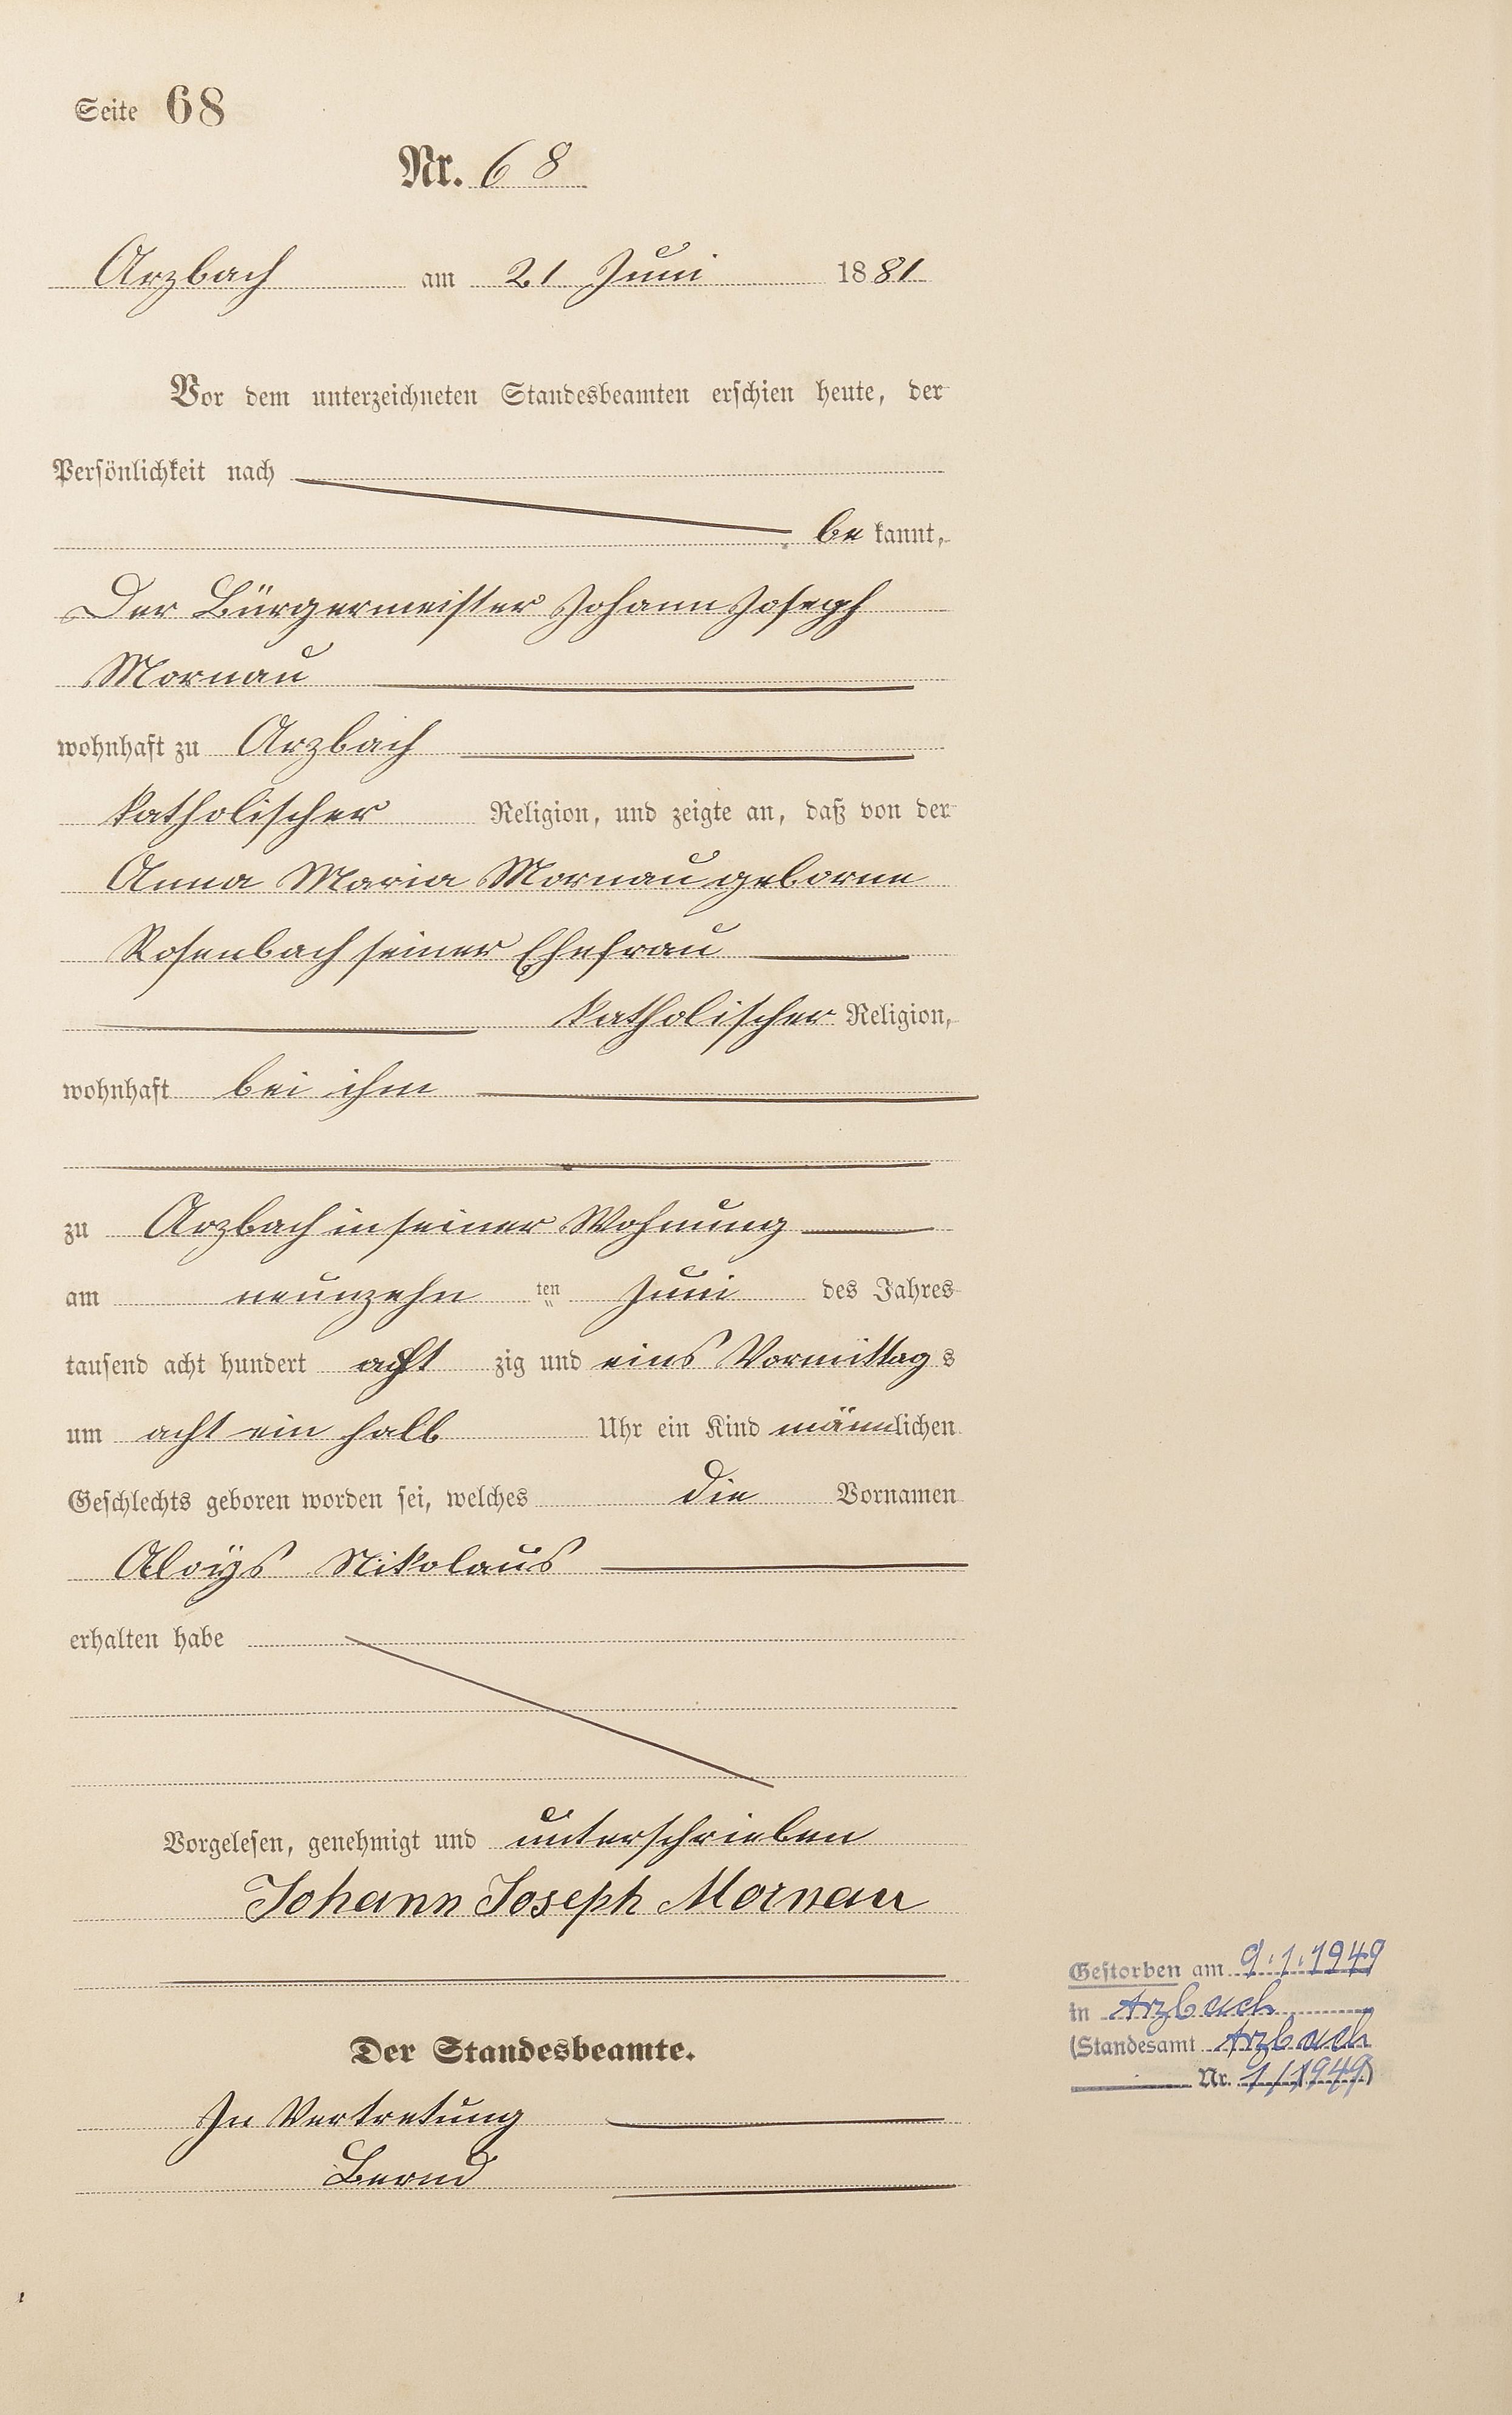 Seite 68
Nr. 68
Arzbach am 21 Juni 1881
Vor dem unterzeichneten Standesbeamten erschien heute, der
Persönlichkeit nach
bekannt,
Der Bürgermeister Johann Joseph
Mornau
wohnhaft zu Arzbach
katholischer Religion, und zeigte an, daß von der
Anna Maria Mornau geborne
Rosenbach seiner Ehefrau
katholischer Religion,
wohnhaft bei ihm
zu Arzbach in seiner Wohnung
am neunzehn ten Juni des Jahres
tausend acht hundert acht zig und eins Vormittags
um acht ein halb Uhr ein Kind männlichen
Geschlechts geboren worden sei, welches die Vornamen
Aloÿs Nikolaus
erhalten habe
Vorgelesen, genehmigt und unterschrieben
Johann Joseph Mornau
Gestorben am 9.1.1949
in Arzbach
(Standesamt Arzbach
Nr. 1/1949)
Der Standesbeamte.
In Vertretung
Bernd